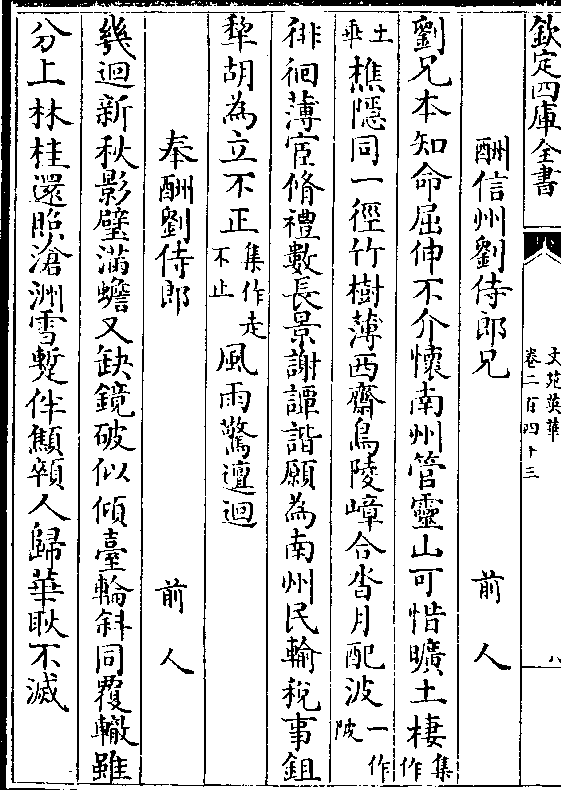 欽定四庫全書
文苑英華
卷二百四十三
八
酬信州劉侍郎兄
前人
劉兄本知命屈伸不介懷南州管靈山可惜曠土棲集作
土垂樵隠同一徑竹樹薄西齋鳥陵嶂合沓月配波一作陂
徘徊薄宦脩禮數長景謝譚諧願為南州民輸税事鉏
犂胡為立不正集作走不止風雨驚邅迴
奉酬劉侍郎
前人
幾迴新秋影璧滿蟾又缺鏡破似傾臺輪斜同覆轍雖
分上林桂還照滄洲雪蹔伴顦顇人歸華耿不滅